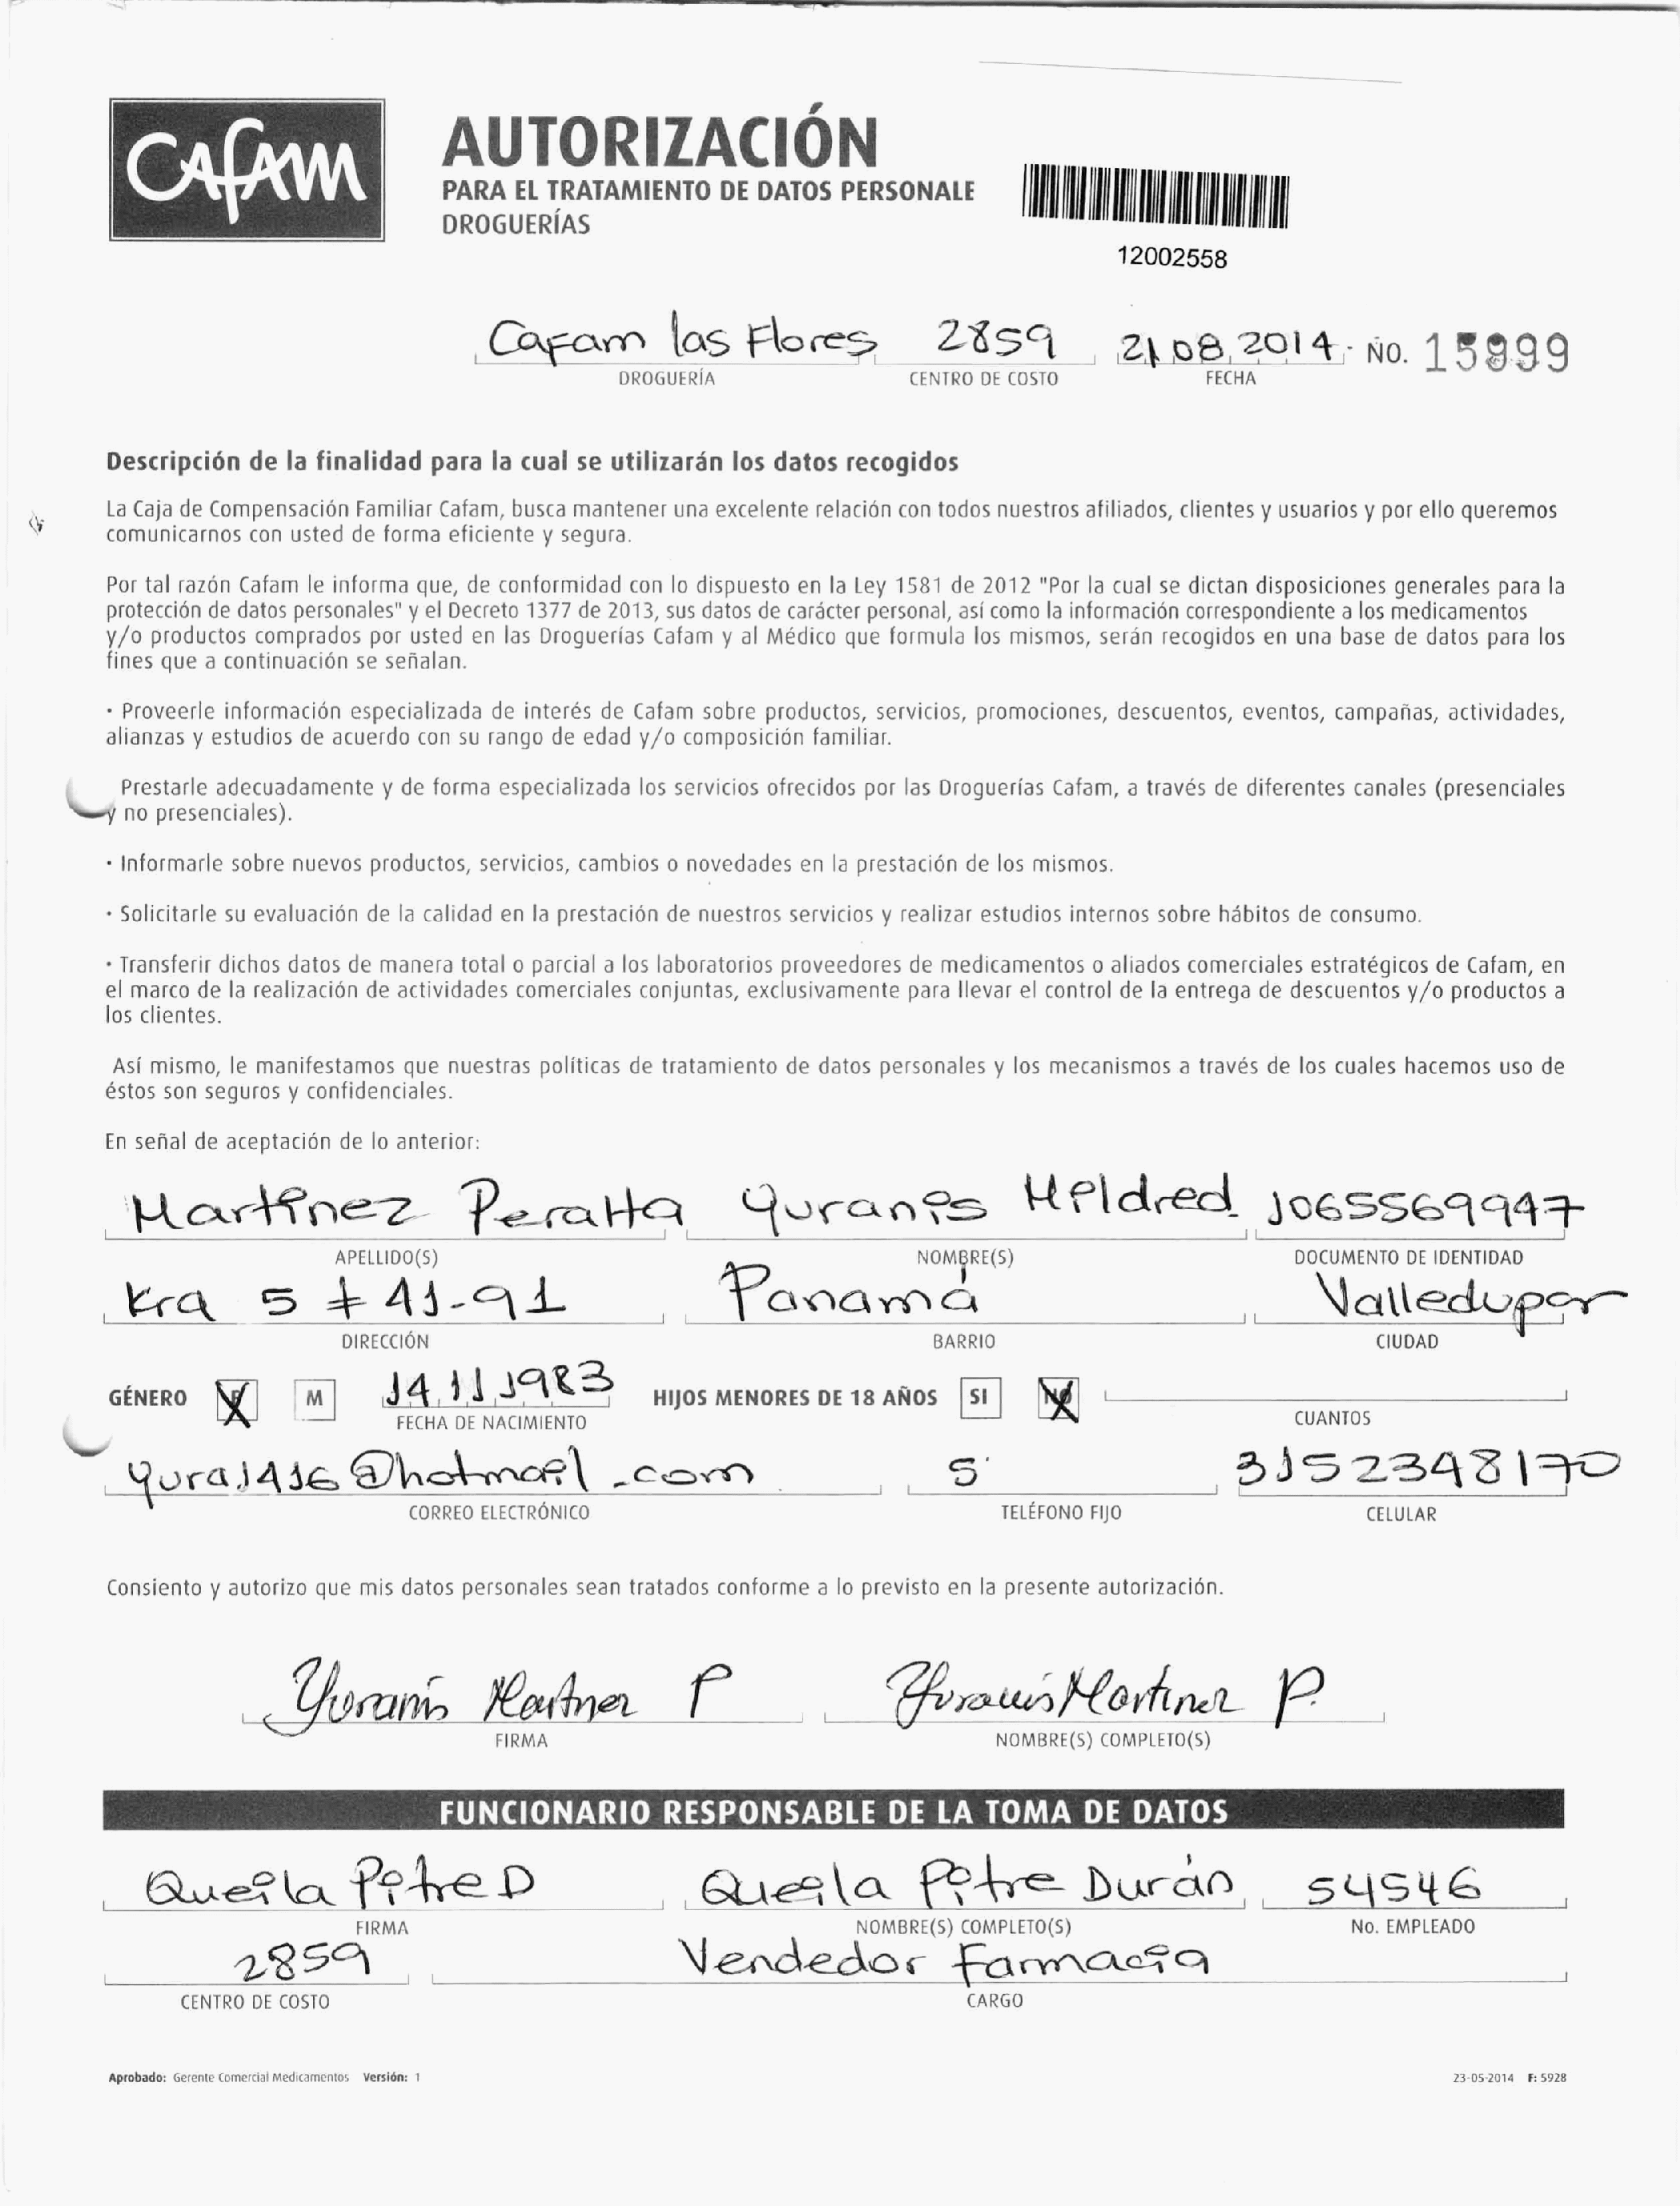 CAFAM
AUTORIZACIÓN
PARA EL TRATAMIENTO DE DATOS PERSONALE
DROGUERÍAS
12002558
Cafam las Flores 2859 21 08 2014 No. 15999
DROGUERÍA CENTRO DE COSTO FECHA
Descripción de la finalidad para la cual se utilizarán los datos recogidos
La Caja de Compensación Familiar Cafam, busca mantener una excelente relación con todos nuestros afiliados, clientes y usuarios y por ello queremos
comunicarnos con usted de forma eficiente y segura.
Por tal razón Cafam le informa que, de conformidad con lo dispuesto en la Ley 1581 de 2012 "Por la cual se dictan disposiciones generales para la
protección de datos personales" y el Decreto 1377 de 2013, sus datos de carácter personal, así como la información correspondiente a los medicamentos
y/o productos comprados por usted en las Droguerías Cafam y al Médico que formula los mismos, serán recogidos en una base de datos para los
fines que a continuación se señalan.
· Proveerle información especializada de interés de Cafam sobre productos, servicios, promociones, descuentos, eventos, campañas, actividades,
alianzas y estudios de acuerdo con su rango de edad y/o composición familiar.
Prestarle adecuadamente y de forma especializada los servicios ofrecidos por las Droguerías Cafam, a través de diferentes canales (presenciales
y no presenciales).
· Informarle sobre nuevos productos, servicios, cambios o novedades en la prestación de los mismos.
· Solicitarle su evaluación de la calidad en la prestación de nuestros servicios y realizar estudios internos sobre hábitos de consumo.
· Transferir dichos datos de manera total o parcial a los laboratorios proveedores de medicamentos o aliados comerciales estratégicos de Cafam, en
el marco de la realización de actividades comerciales conjuntas, exclusivamente para llevar el control de la entrega de descuentos y/o productos a
los clientes.
Así mismo, le manifestamos que nuestras políticas de tratamiento de datos personales y los mecanismos a través de los cuales hacemos uso de
éstos son seguros y confidenciales.
En señal de aceptación de lo anterior:
Martinez Peralta Yuranis Mildred 1065569947
APELLIDO(S) NOMBRE(S) DOCUMENTO DE IDENTIDAD
Kra 5 # 41-91 Panamá Valledupar
DIRECCIÓN BARRIO CIUDAD
GÉNERO X M 14 11 1983 HIJOS MENORES DE 18 AÑOS SI NO
FECHA DE NACIMIENTO CUANTOS
yura1416@hotmail.com 5 3152348170
CORREO ELECTRÓNICO TELÉFONO FIJO CELULAR
Consiento y autorizo que mis datos personales sean tratados conforme a lo previsto en la presente autorización.
Yuranis Martinez P Yuranis Martinez P.
FIRMA NOMBRE(S) COMPLETO(S)
FUNCIONARIO RESPONSABLE DE LA TOMA DE DATOS
Queila Pitre D Queila Pitre Durán 54546
FIRMA NOMBRE(S) COMPLETO(S) No. EMPLEADO
2859 Vendedor Farmacia
CENTRO DE COSTO CARGO
Aprobado: Gerente Comercial Medicamentos Versión: 1 23-05-2014 F: 5928